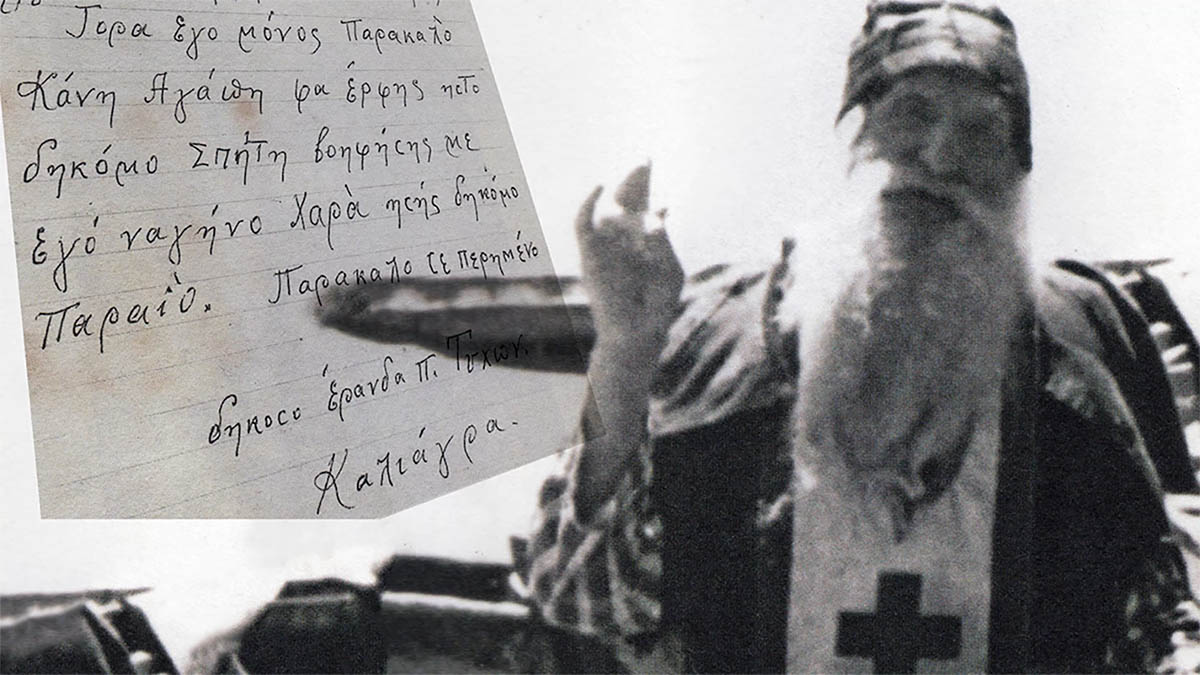 Τορα εγο μόνος Παρακαλο
Κάνη Αγάπη φα έρφης ητο
δηκόμο Σπήτη βοηφήσης με
εγό ναγήνο Χαρὰ ησής δηκόμο
Παραιο. Παρακαλο σε περημένο
δηκοσο έρανδα π. Τυχων.
Καλιάγρα.